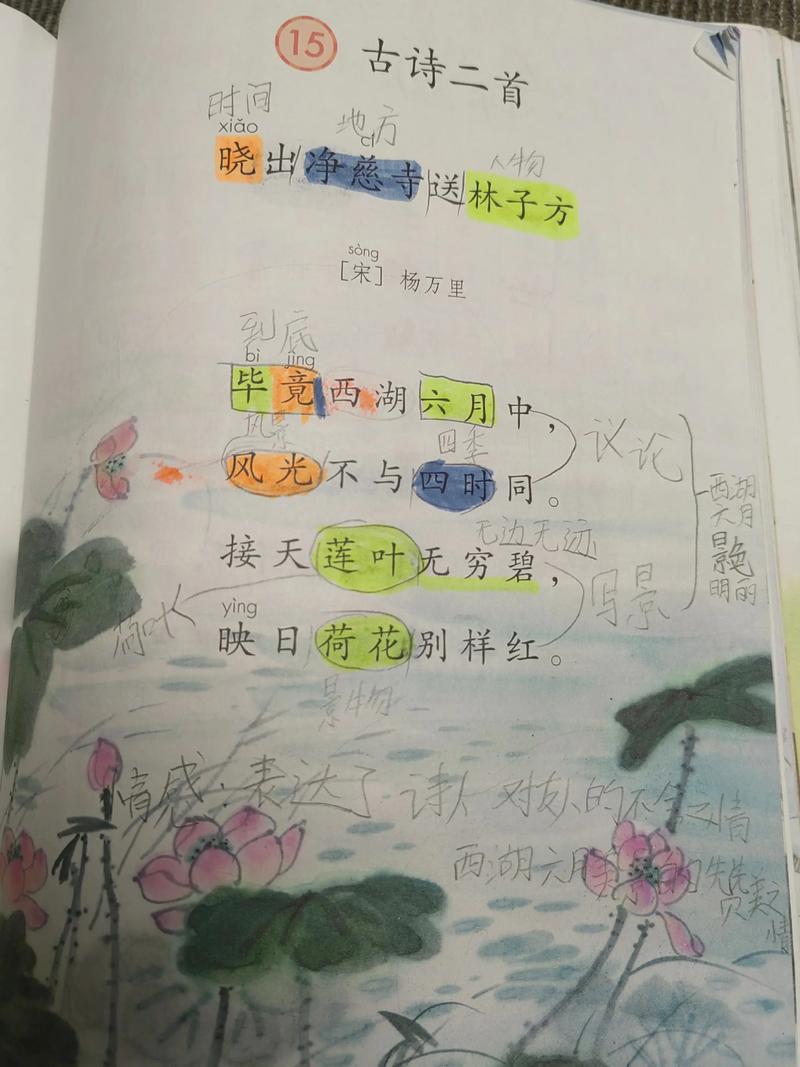 15 古诗二首
时间
地方
xiǎo
cí
人物
晓出净慈寺送林子方
sòng
[宋] 杨万里
到底
bì jìng
毕竟西湖六月中，
风景
四季
议论
风光不与四时同。
西湖六月景色明丽
无边无际
接天莲叶无穷碧，
写景
荷叶
yìng
映日荷花别样红。
景物
情感：表达了诗人对友人的不舍之情
西湖六月美景的赞美之情